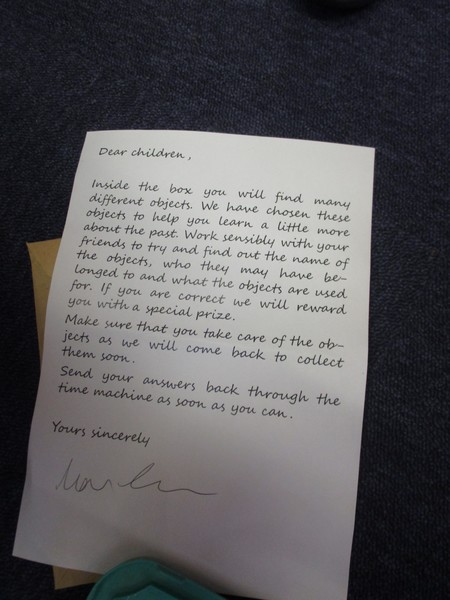 Dear children,
Inside the box you will find many
different objects. We have chosen these
objects to help you learn a little more
about the past. Work sensibly with your
friends to try and find out the name of
the objects, who they may have be-
longed to and what the objects are used
for. If you are correct we will reward
you with a special prize.
Make sure that you take care of the ob-
jects as we will come back to collect
them soon.
Send your answers back through the
time machine as soon as you can.
Yours sincerely